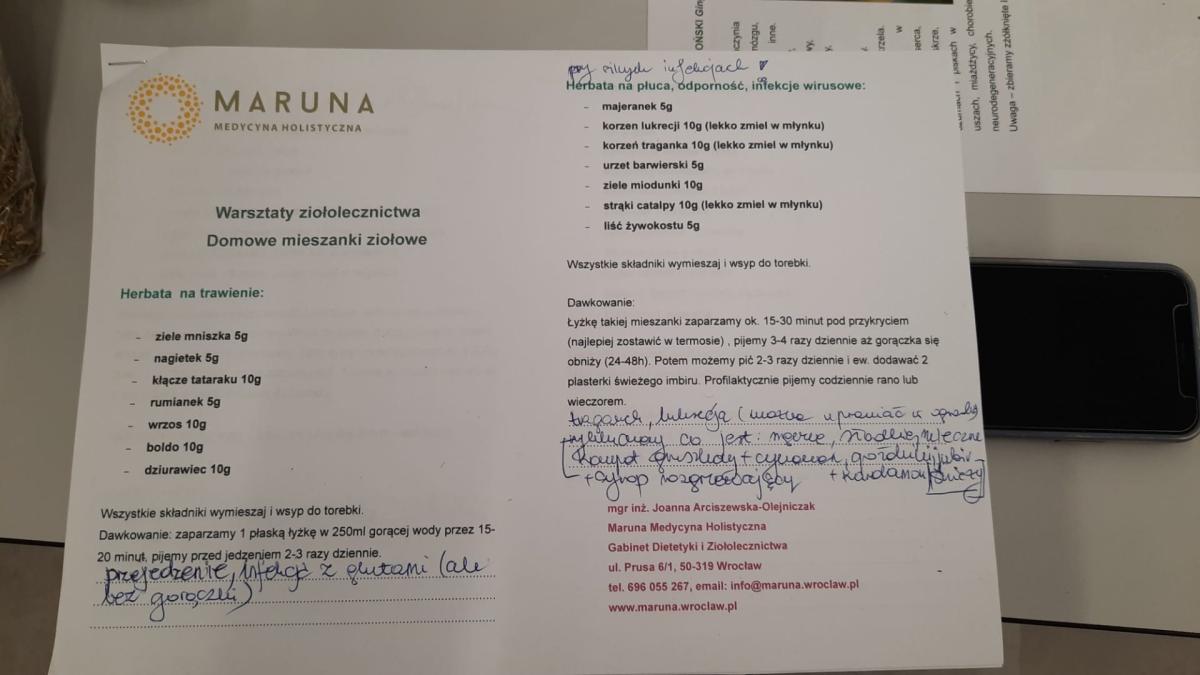 MARUNA
MEDYCYNA HOLISTYCZNA
Warsztaty ziołolecznictwa
Domowe mieszanki ziołowe
Herbata na trawienie:
- ziele mniszka 5g
- nagietek 5g
- kłącze tataraku 10g
- rumianek 5g
- wrzos 10g
- boldo 10g
- dziurawiec 10g
Wszystkie składniki wymieszaj i wsyp do torebki.
Dawkowanie: zaparzamy 1 płaską łyżkę w 250ml gorącej wody przez 15-
20 minut, pijemy przed jedzeniem 2-3 razy dziennie.
przejedzenie, infekcji z glutami (ale
bez gorączki)
przy silnych infekcjach
Herbata na płuca, odporność, infekcje wirusowe:
- majeranek 5g
- korzen lukrecji 10g (lekko zmiel w młynku)
- korzeń traganka 10g (lekko zmiel w młynku)
- urzet barwierski 5g
- ziele miodunki 10g
- strąki catalpy 10g (lekko zmiel w młynku)
- liść żywokostu 5g
Wszystkie składniki wymieszaj i wsyp do torebki.
Dawkowanie:
Łyżkę takiej mieszanki zaparzamy ok. 15-30 minut pod przykryciem
(najlepiej zostawić w termosie) , pijemy 3-4 razy dziennie aż gorączka się
obniży (24-48h). Potem możemy pić 2-3 razy dziennie i ew. dodawać 2
plasterki świeżego imbiru. Profilaktycznie pijemy codziennie rano lub
wieczorem.
traganek, lukrecja (można uprawiać w
co jest: mączne, słodkie, mleczne
Kompot gruszkowy + cynamon, goździki, imbir
+ syrop rozgrzewający + kardamon
mgr inż. Joanna Arciszewska-Olejniczak
Maruna Medycyna Holistyczna
Gabinet Dietetyki i Ziołolecznictwa
ul. Prusa 6/1, 50-319 Wrocław
tel. 696 055 267, email: info@maruna.wroclaw.pl
www.maruna.wroclaw.pl
uszach, miażdżycy, chorobie
neurodegeneracyjnych.
Uwaga – zbieramy zżółknięte